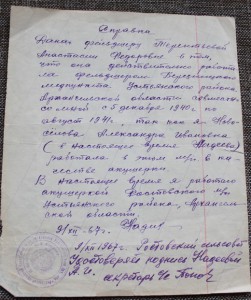 Справка
Дана фельдшеру Терентьевой
Анастасии Федоровне в том,
что она действительно работа
ла фельдшером
медпункта Устьянского района
Архангельской области
с декабря 1940 г. по
август 1941 г., так как я Ново
сёлова Александра Ивановна
(в настоящее время Надеева)
работала в этом м/п в ка
честве акушерки.
В настоящее время я работаю
акушеркой м/п
Устьянского района, Архангель
ской области.
9/XII-67 г.
9/XII 1967 г. Ростовский сельсовет
Удостоверяет подпись Надеевой
А. И.
секретарь с/с